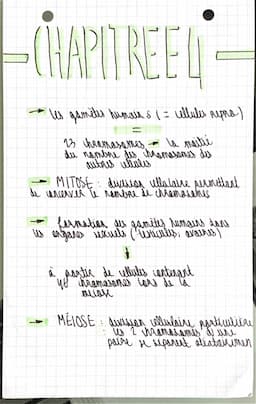 CHAPITRE 4
→ les gamètes humains (= cellules repro)
=
23 chromosomes → la moitié
du nombre des chromosomes des
autres cellules
→ MITOSE : division cellulaire permettant
de conserver le nombre de chromosomes
→ formation des gamètes humains dans
les organes sexuels (testicules, ovaires)
à partir de cellules contenant
46 chromosomes lors de la
méiose
→ MÉIOSE : division cellulaire particulière
: les 2 chromosomes d'une
paire se séparent aléatoirement